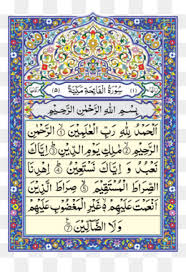 (١) سُورَةُ الْفَاتِحَةِ مَكِّيَّةٌ (٥)
بِسْمِ اللّٰهِ الرَّحْمٰنِ الرَّحِيْمِ
اَلْحَمْدُ لِلّٰهِ رَبِّ الْعٰلَمِيْنَ الرَّحْمٰنِ
الرَّحِيْمِ مٰلِكِ يَوْمِ الدِّيْنِ اِيَّاكَ
نَعْبُدُ وَ اِيَّاكَ نَسْتَعِيْنُ اِهْدِنَا
الصِّرَاطَ الْمُسْتَقِيْمَ صِرَاطَ الَّذِيْنَ
اَنْعَمْتَ عَلَيْهِمْ غَيْرِ الْمَغْضُوْبِ عَلَيْهِمْ
وَلَا الضَّآلِّيْنَ